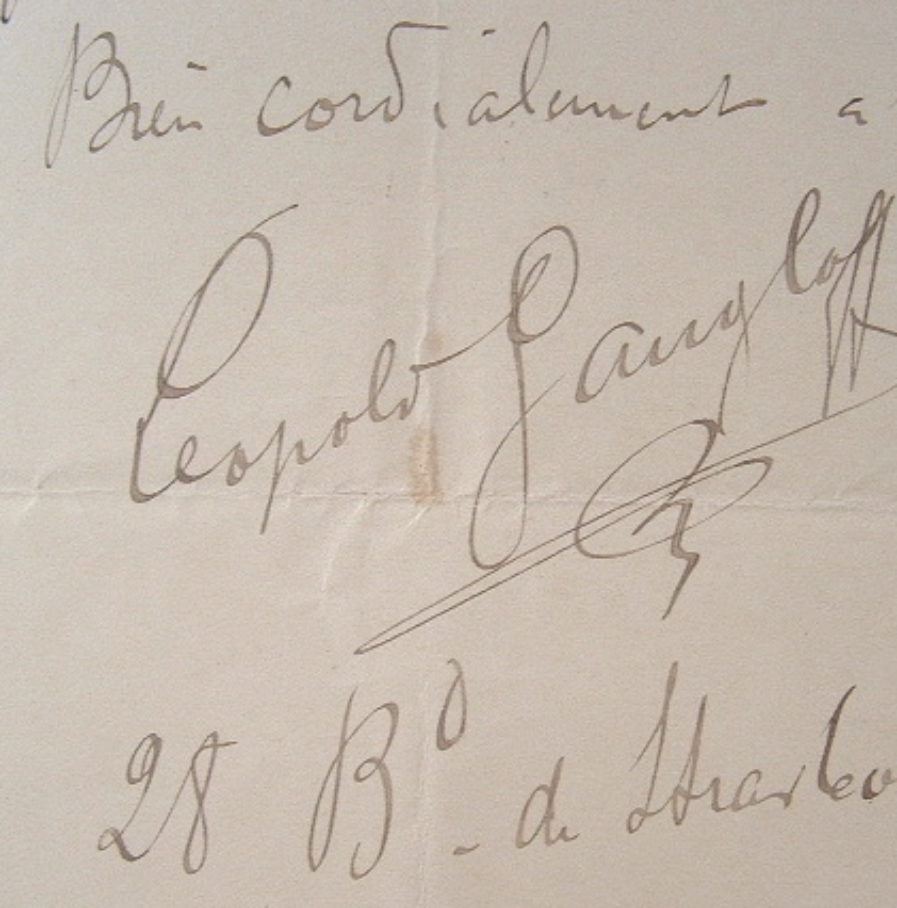 Bien cordialement a
Leopold Gangloff
28 Bd - de Strasbo